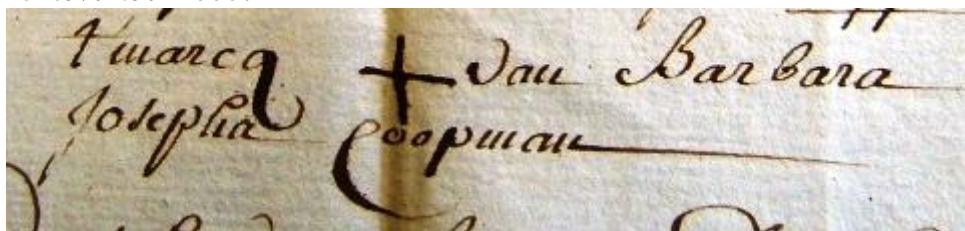 t'marcq + van Barbara
Josepha Coopman